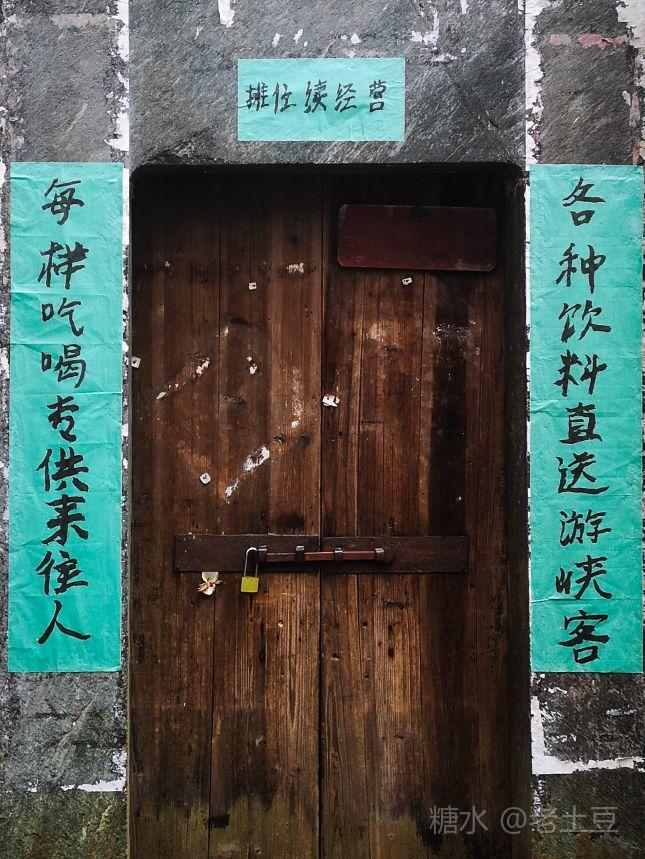 摊位续经营
各种饮料直送游峡客
每样吃喝专供来往人
糖水 @老土豆